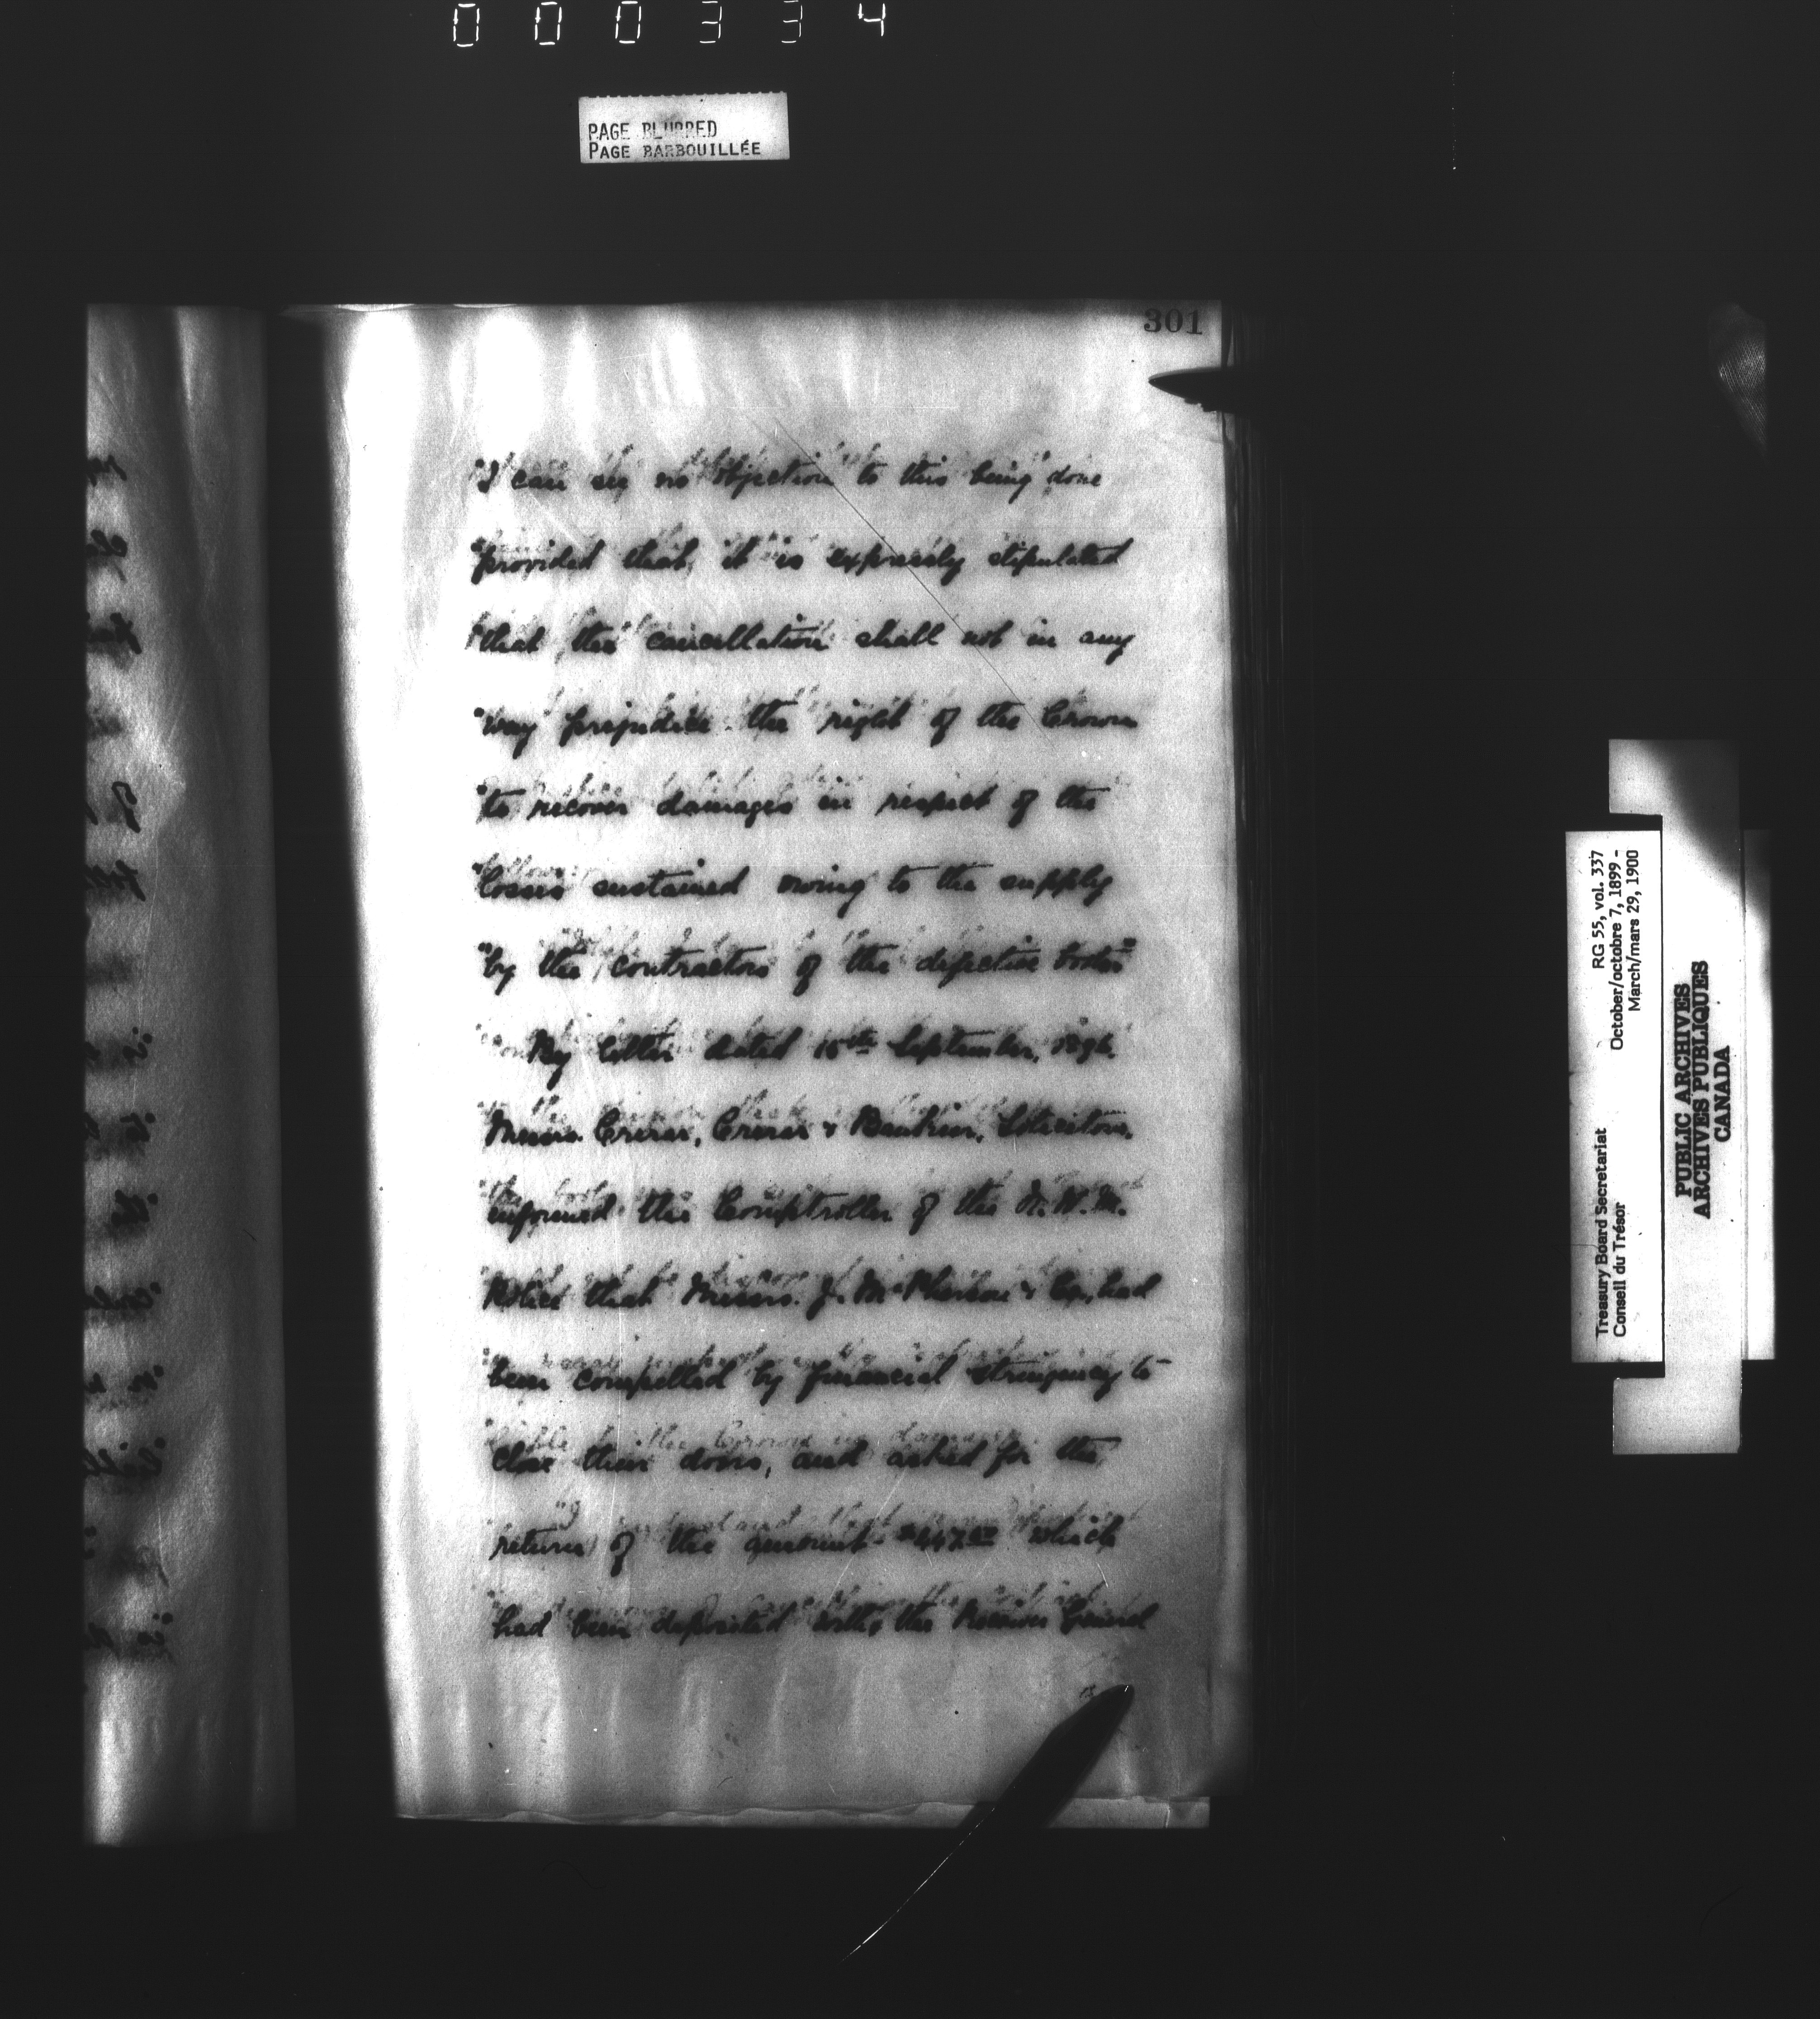 000334
PAGE BLURRED
PAGE BARBOUILLÉE
301
"I can see no objection to this being done
"provided that, it is expressly stipulated
"that the cancellation shall not in any
"way prejudice the right of the Crown
"to recover damages in respect of the
"losses sustained owing to the supply
"by the contractors of the defective boots"
By letter dated 15th September,
Messrs. Crerar, Crerar & Bankier, Solicitors,
informed the Comptroller of the N. W. M.
Police that Messrs. J. McPherson & Co., had
been compelled by financial stringency to
close their doors, and asked for the
return of the amount which
had been deposited with the Receiver General
Treasury Board Secretariat RG 55, vol. 337
Conseil du Trésor October/octobre 7, 1899 -
March/mars 29, 1900
PUBLIC ARCHIVES
ARCHIVES PUBLIQUES
CANADA